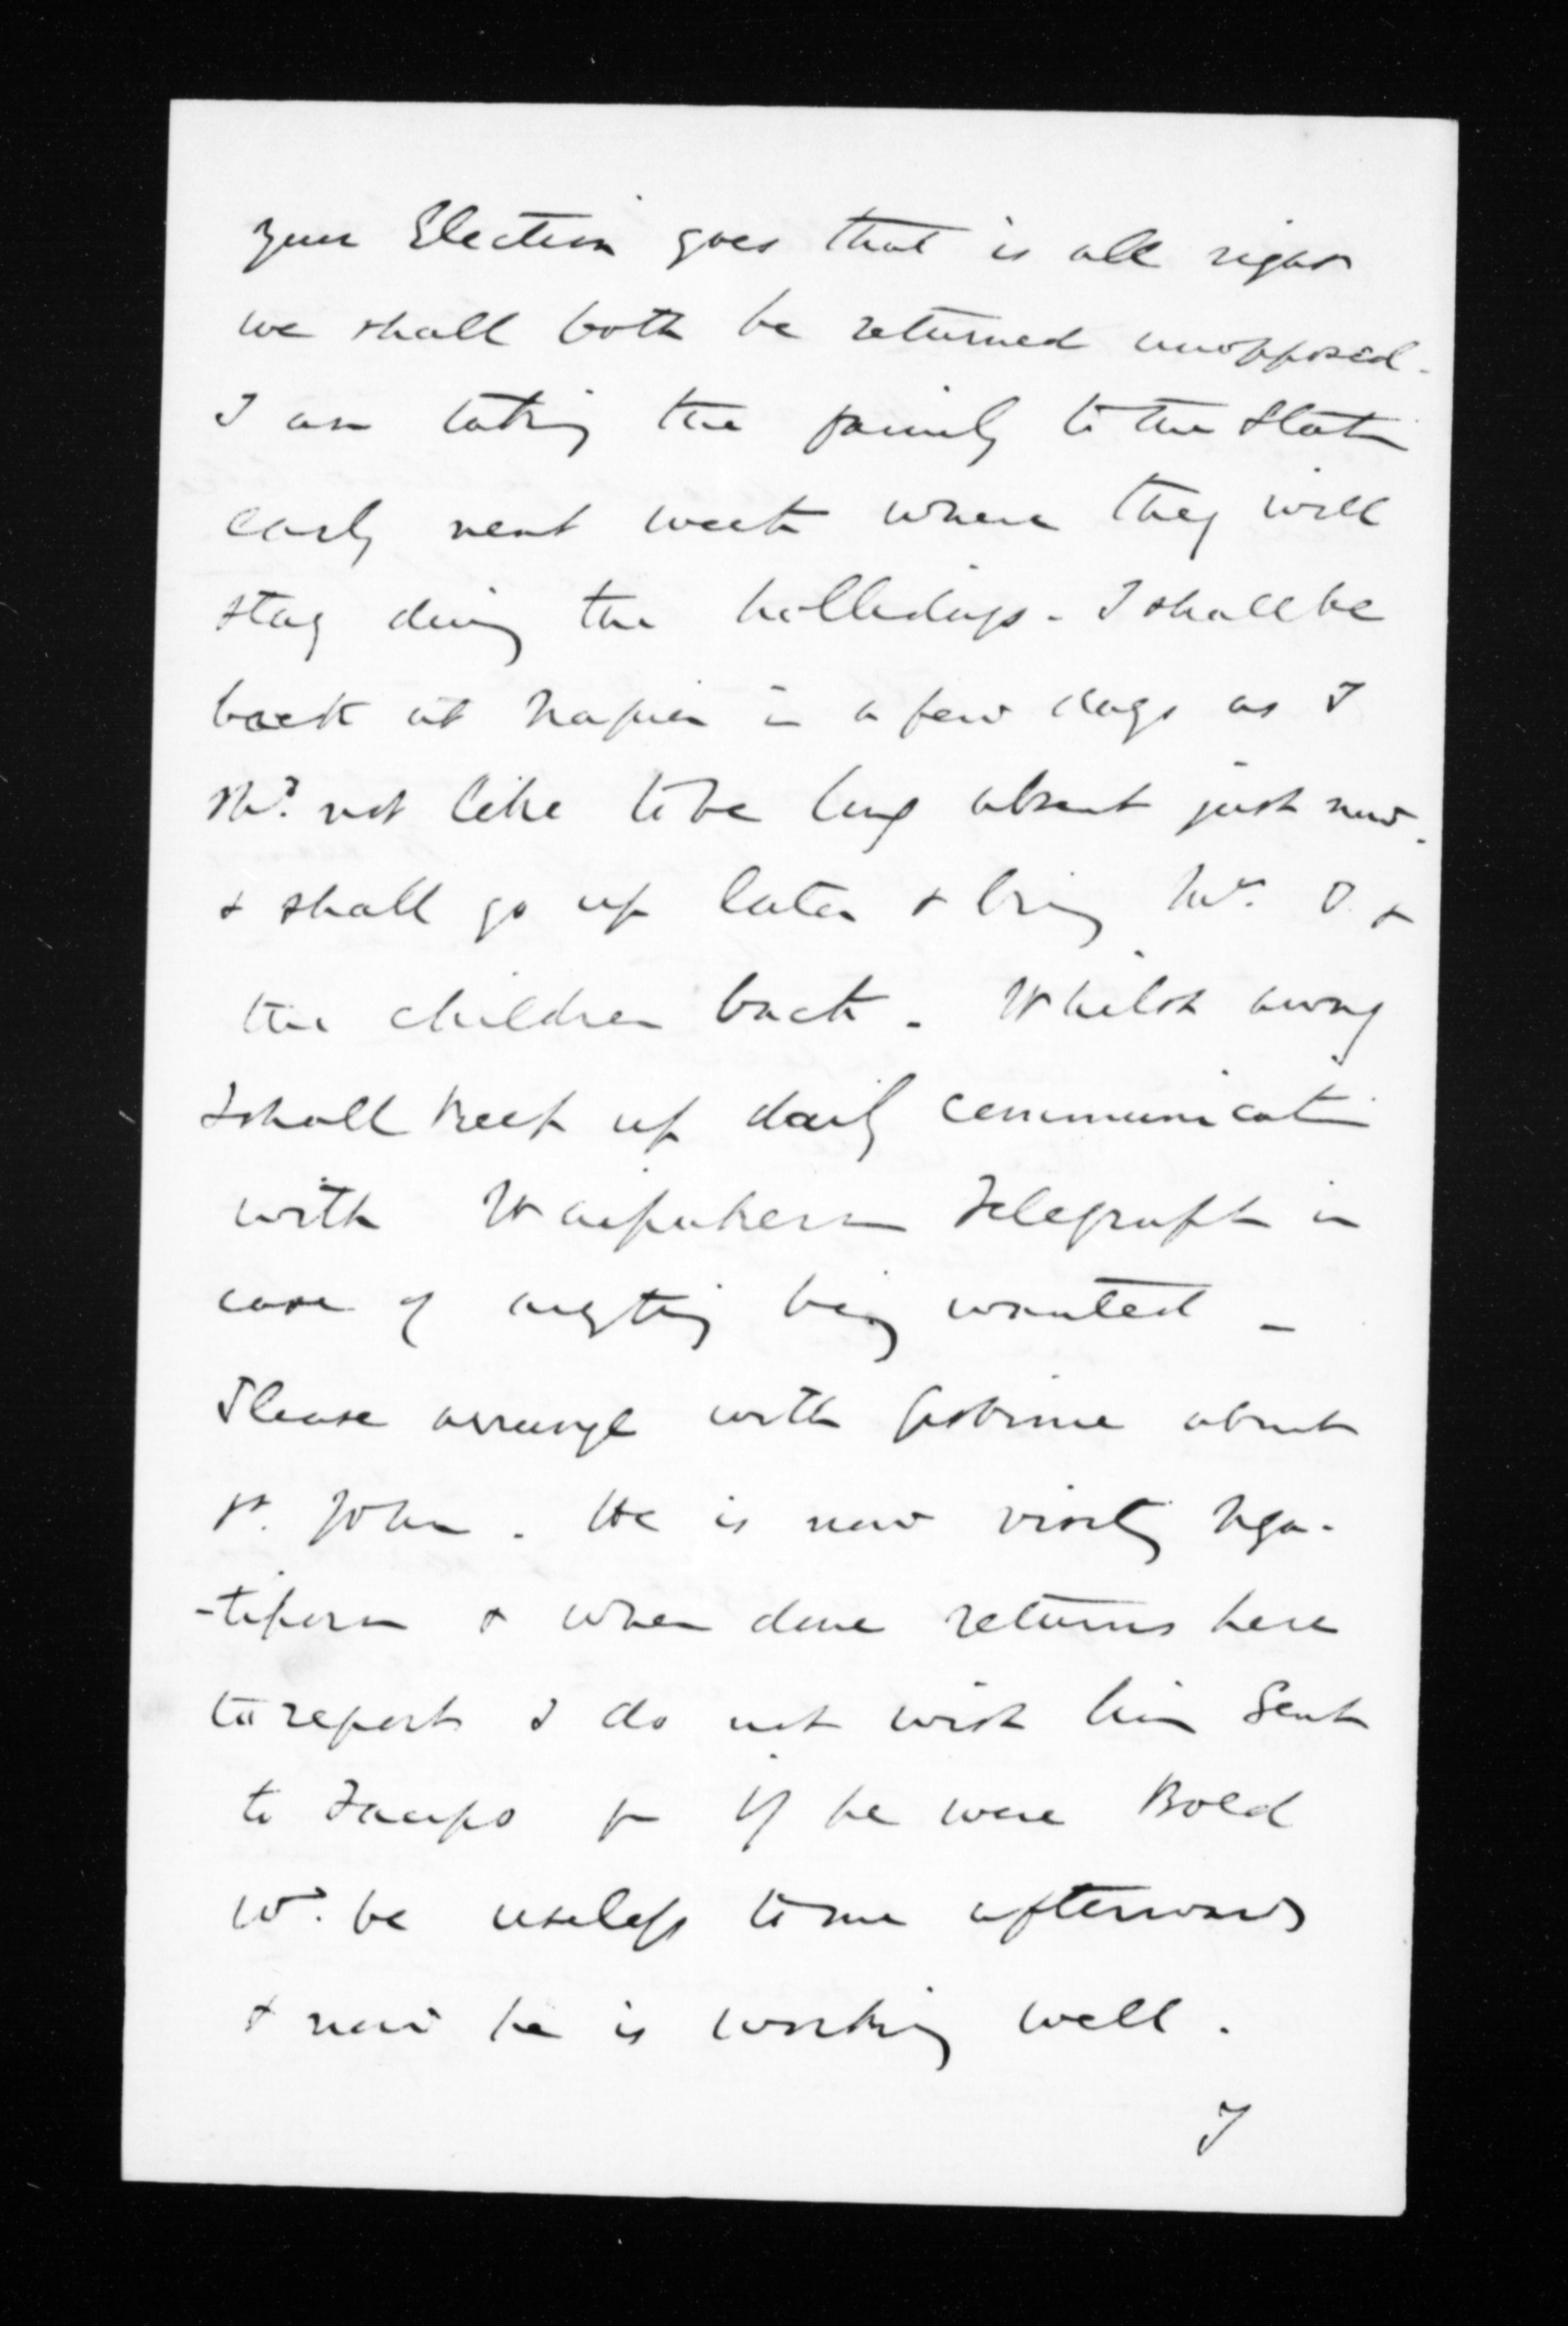 your Election goes that is all right
we shall both be returned unopposed.
I am taking the family to the Station
early next week where they will
stay during the hollidays. I shall be
back at Napier in a few days as I
shd. not like to be long absent just now.
& shall go up later & bring Mrs. O. &
the children back. Whilst away
I shall keep up daily communication
with Waipukurau Telegraph in
case of anything being wanted _
Please arrange with Gisborne about
St. John. He is now visiting Nga-
-tiporou & when done returns here
to report I do not wish him Sent
to Taupo for if he were Bold
wd. be useless to me afterwards
& now he is working well.
I